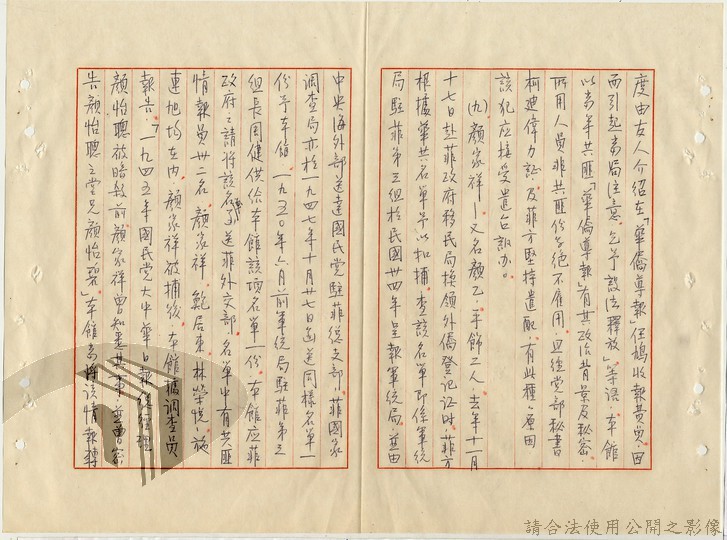 度由友人介紹在「華僑導報」任鳩收報費員、因
而引起當局注意。乞予設法釋放」等語。本館
以當年共匪「華僑導報」有其政治背景及秘密。
所用人員非共匪份子絕不雇用。且經黨部秘書
柯迪偉力証、及菲方堅持遣配、有此種種原因
該犯應接受遣台訊办。
(九)顏家祥—又名顏乙、平飾二人。去年十一月
十七日赴菲政府移民局換領外僑登記证时、菲方
根據華共名單予以扣捕。查該名單即係軍統
局駐菲第三組於民國卅四年呈報軍統局、並由
中央海外部送達國民党駐菲總支部。菲國家
調查局亦於一九四七年十月廿七日函送同樣名單一
份予本館。一九五〇年六月前軍統局駐菲第三
組長周健供给本館該項名單一份。本館应菲
政府之請將該名單送菲外交部。名單中有共匪
情報員卅二名、顏家祥、鮑居東、林榮悅、施
連旭均在內。顏家祥被捕後、本館據調查員
報告:「一九四五年國民党大中華日報總經理
顏怡聰被暗殺前、顏家祥曾知悉其事、並曾密
告顏怡聰之堂兄顏怡碧」本館当將該情報轉
請合法使用公開之影像